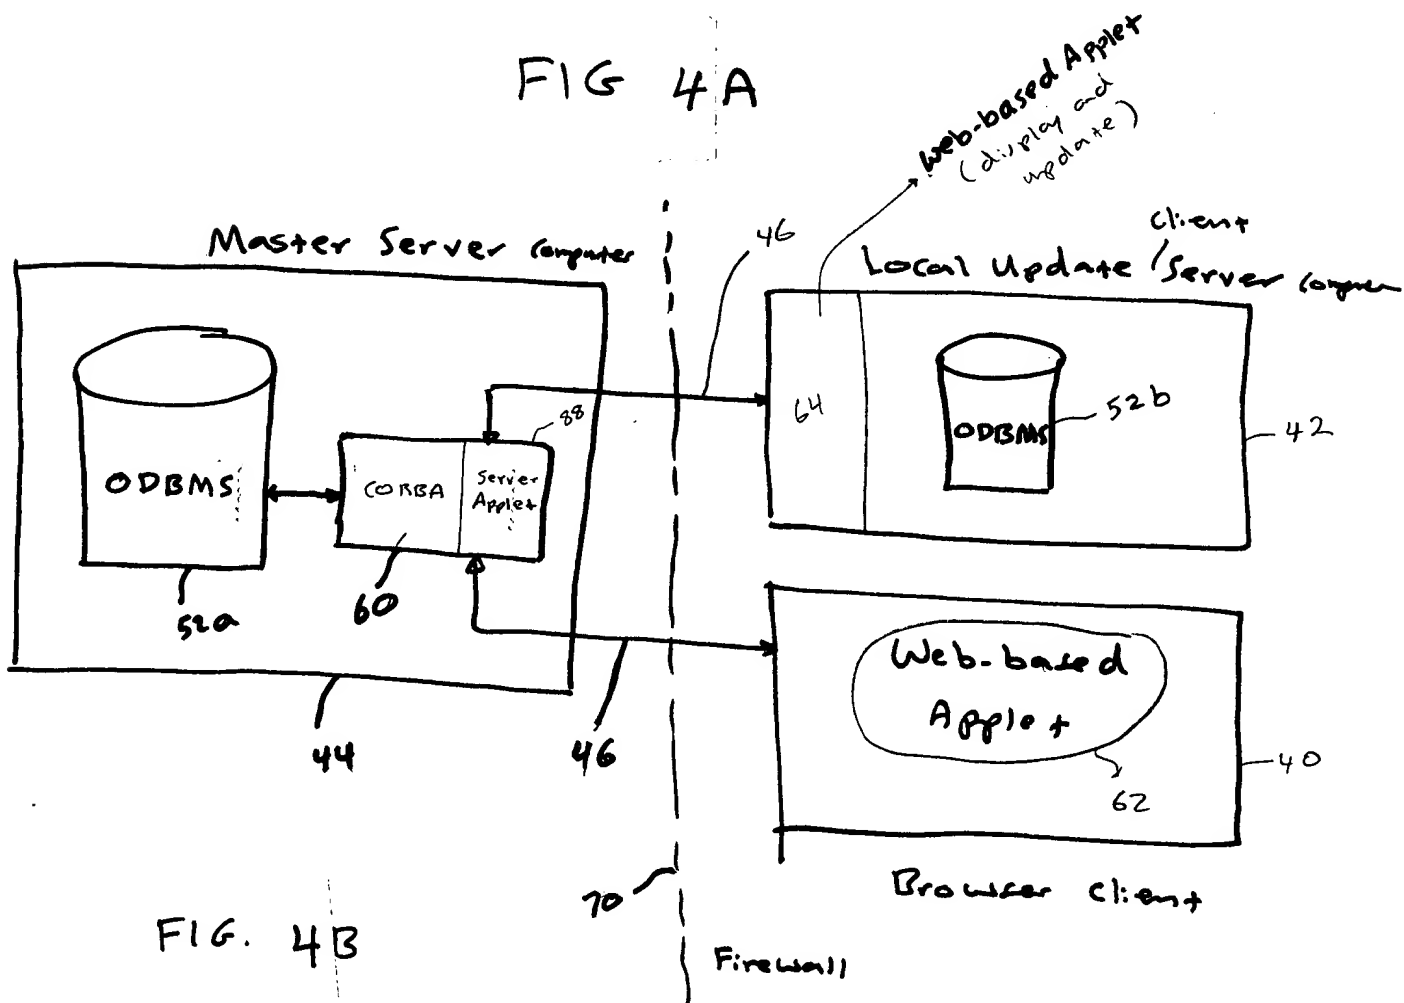 FIG 4A
Web-based Applet
(display and
update)
Master Server computer
46
client
Local Update / Server computer
ODBMS
CORBA
Server
Applet
88
64
ODBMS
52b
42
52a
60
44
46
Web-based
Applet
62
40
70
Browser client
FIG. 4B
Firewall